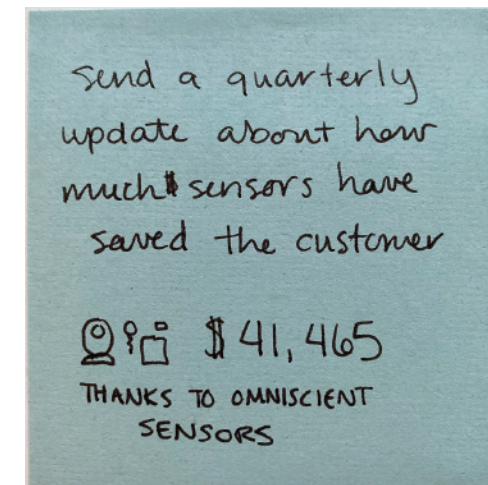 send a quarterly
update about how
much $ sensors have
saved the customer
$41,465
THANKS TO OMNISCIENT
SENSORS